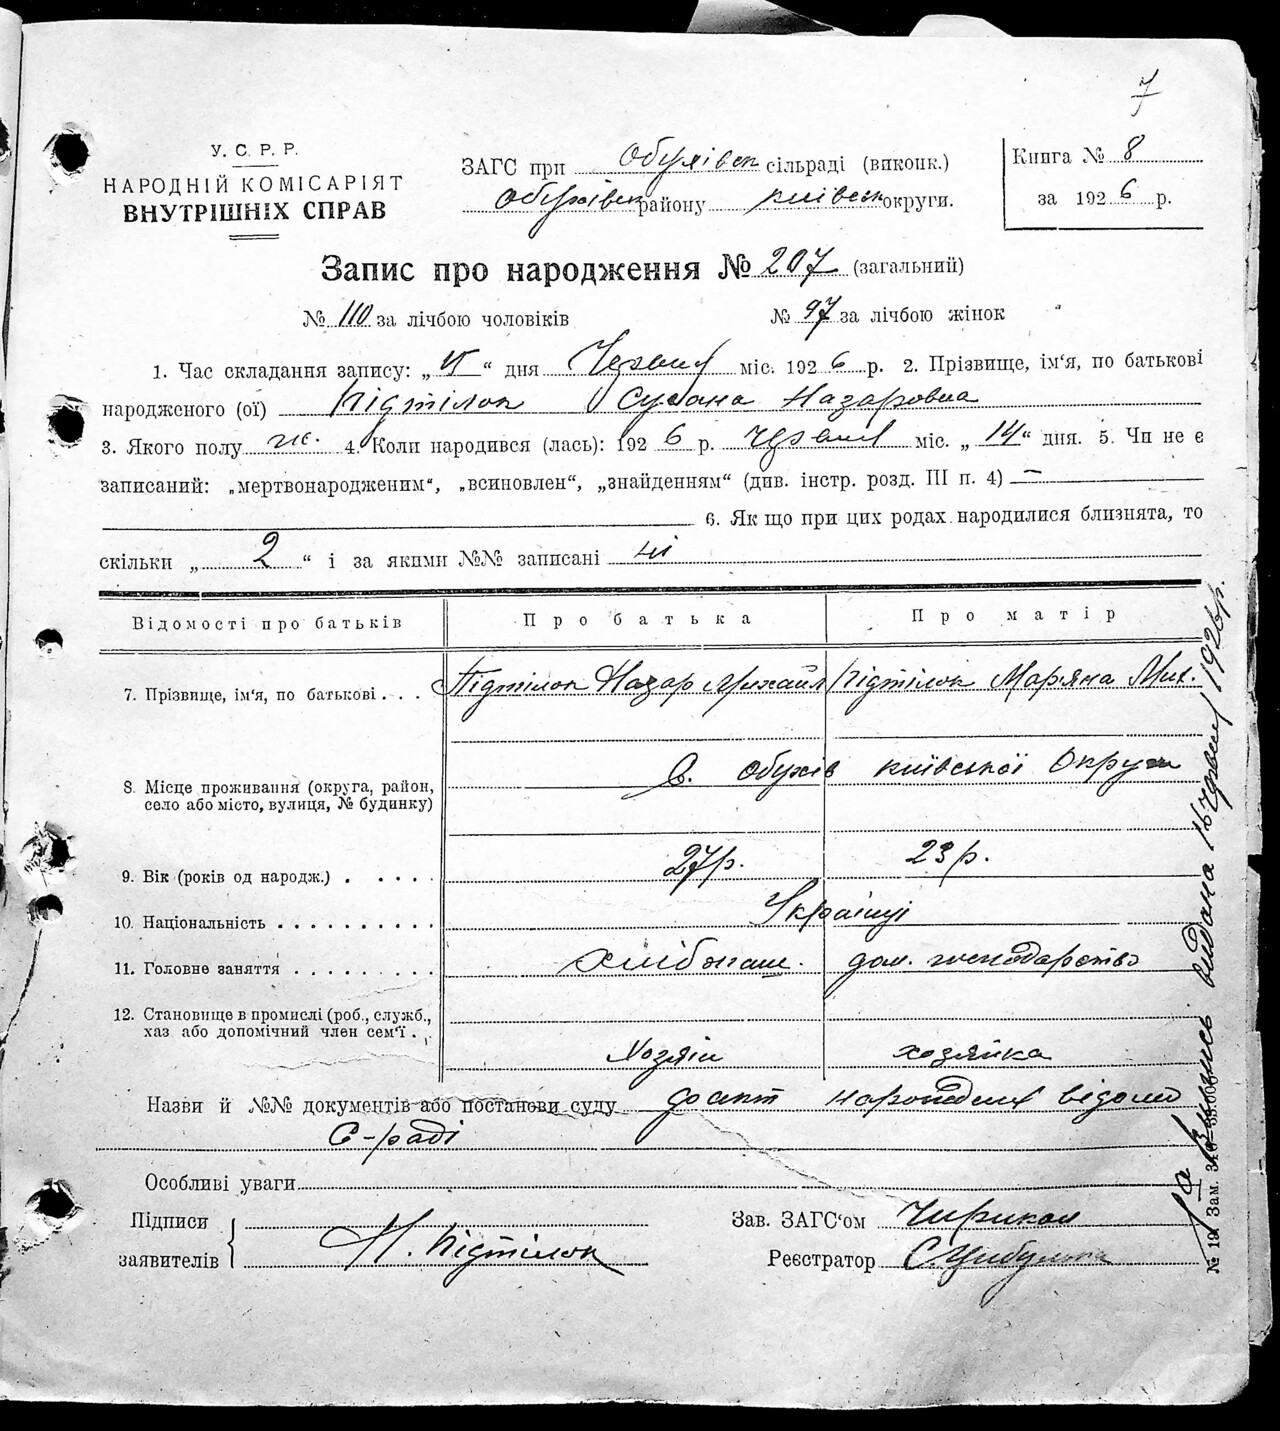 7
У. С. Р. Р.
НАРОДНІЙ КОМІСАРІЯТ
ВНУТРІШНІХ СПРАВ
ЗАГС при Обухівськ сільраді (виконк.)
Обухівськ району Київськ округи.
Книга № 8
за 1926 р.
Запис про народження № 207 (загальний)
№ 110 за лічбою чоловіків № 97 за лічбою жінок
1. Час складання запису: „ “ дня Червня міс. 1926 р. 2. Прізвище, ім‘я, по батькові
народженого (ої) Підтілок Сусана Назаровна
3. Якого полу ж. 4. Коли народився (лась): 1926 р. червня міс. „14“ дня. 5. Чи не є
записаний: „мертвонародженим“, „всиновлен“, „знайденням“ (див. інстр. розд. III п. 4) —
6. Як що при цих родах народилися близнята, то
скільки „ 2 “ і за якими №№ записані ні
Відомості про батьків Про батька Про матір
7. Прізвище, ім‘я, по батькові . . . Підтілок Назар Михайл Підтілок Мар‘яна Мих.
8. Місце проживання (округа, район,
село або місто, вулиця, № будинку)
с. Обухів київської Округи
9. Вік (років од народж.) . . . . . 27 р. 23 р.
10. Національність . . . . . . . . . . Українці
11. Головне заняття . . . . . . . . . хлібопаш. дом. господарство
12. Становище в промислі (роб., службд.,
хаз або допомічний член сем‘ї . .
Хозяін хозяйка
Назви й №№ документів або постанови суду факт народження відомо
С-раді
Особливі уваги
Підписи
заявителів
Н. Підтілок
Зав. ЗАГС‘ом
Реєстратор С. Цибулька
1а Випись видана 16 червня 1926 р.